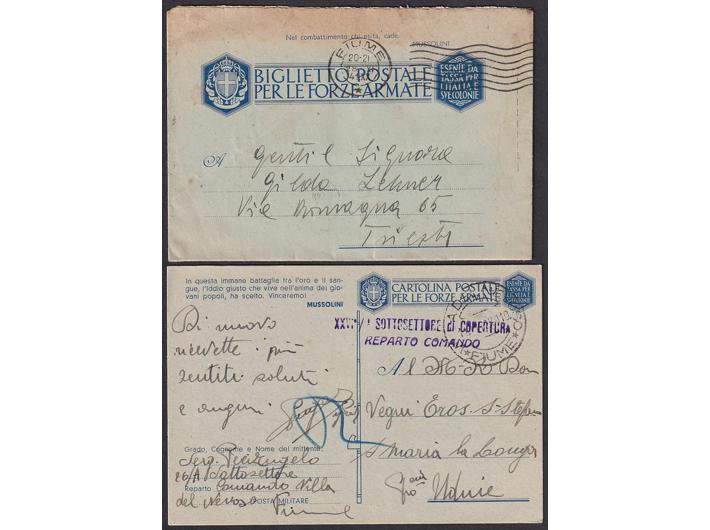 Nel combattimento chi esita, cade.
MUSSOLINI
FIUME
20-21
BIGLIETTO POSTALE
PER LE FORZE ARMATE
ESENTE DA
TASSA PER
L'ITALIA E
SVE COLONIE
A Gentil Signora
Gilda Lehner
Via Romagna 65
Trieste
In questa immane battaglia fra l'oro e il san-
gue, l'Iddio giusto che vive nell'anima dei gio-
vani popoli, ha scelto. Vinceremo!
MUSSOLINI
CARTOLINA POSTALE
PER LE FORZE ARMATE
ESENTE DA
TASSA PER
L'ITALIA E
SVE COLONIE
SOTTOSETTORE di COPERTURA
REPARTO COMANDO
FIUME
Di nuovo
ricevette più
sentiti saluti
e auguri
Al
Eros S. Stefano
S Maria la Longa
Udine
Grado, Cognome e Nome del mittente
Serg.
26/A Sottosettore
Reparto Comando Villa
del Nevoso Fiume
POSTA MILITARE